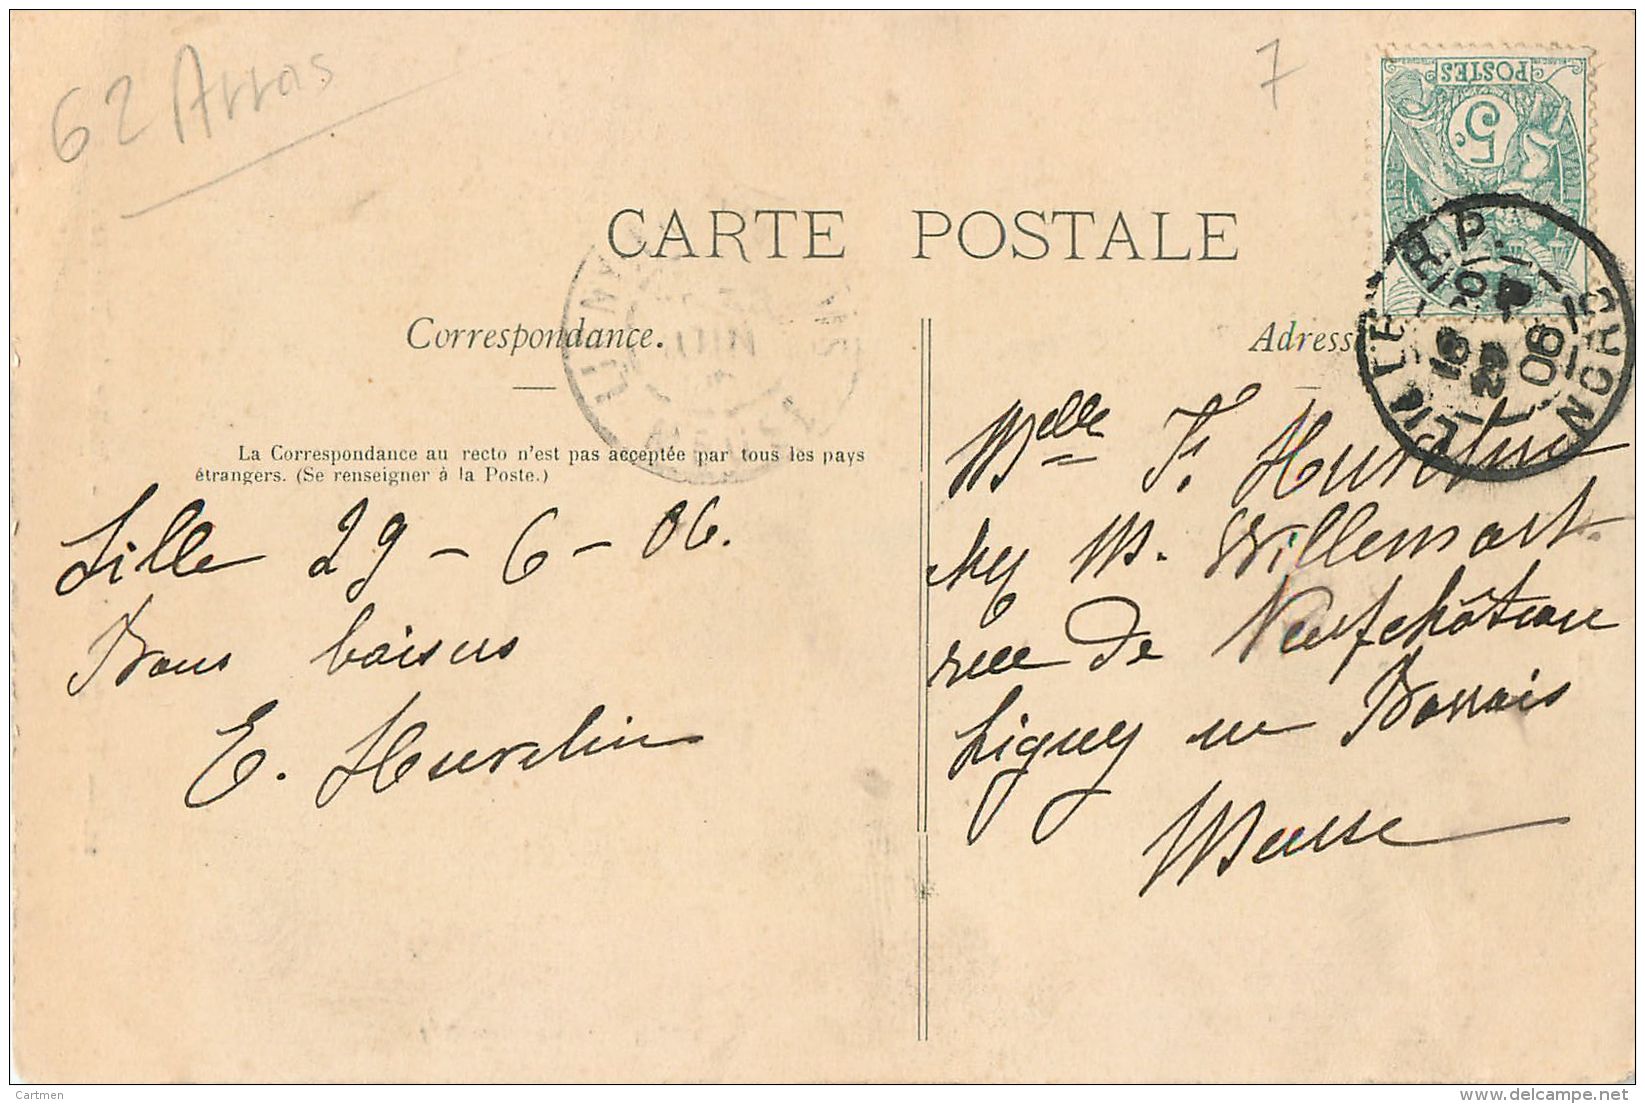 62 Arras
7
POSTES
5c.
CARTE POSTALE
Correspondance.
Adress
LILLE R.P.
NORD
29
06
La Correspondance au recto n'est pas acceptée par tous les pays
étrangers. (Se renseigner à la Poste.)
Lille 29-6-06.
Bons baisers
E. Huvelin
Melle F. Huvelin
chez M. Willemart.
rue de Neufchâteau
Ligny en Barrois
Meuse
Cartmen
delcampe.net